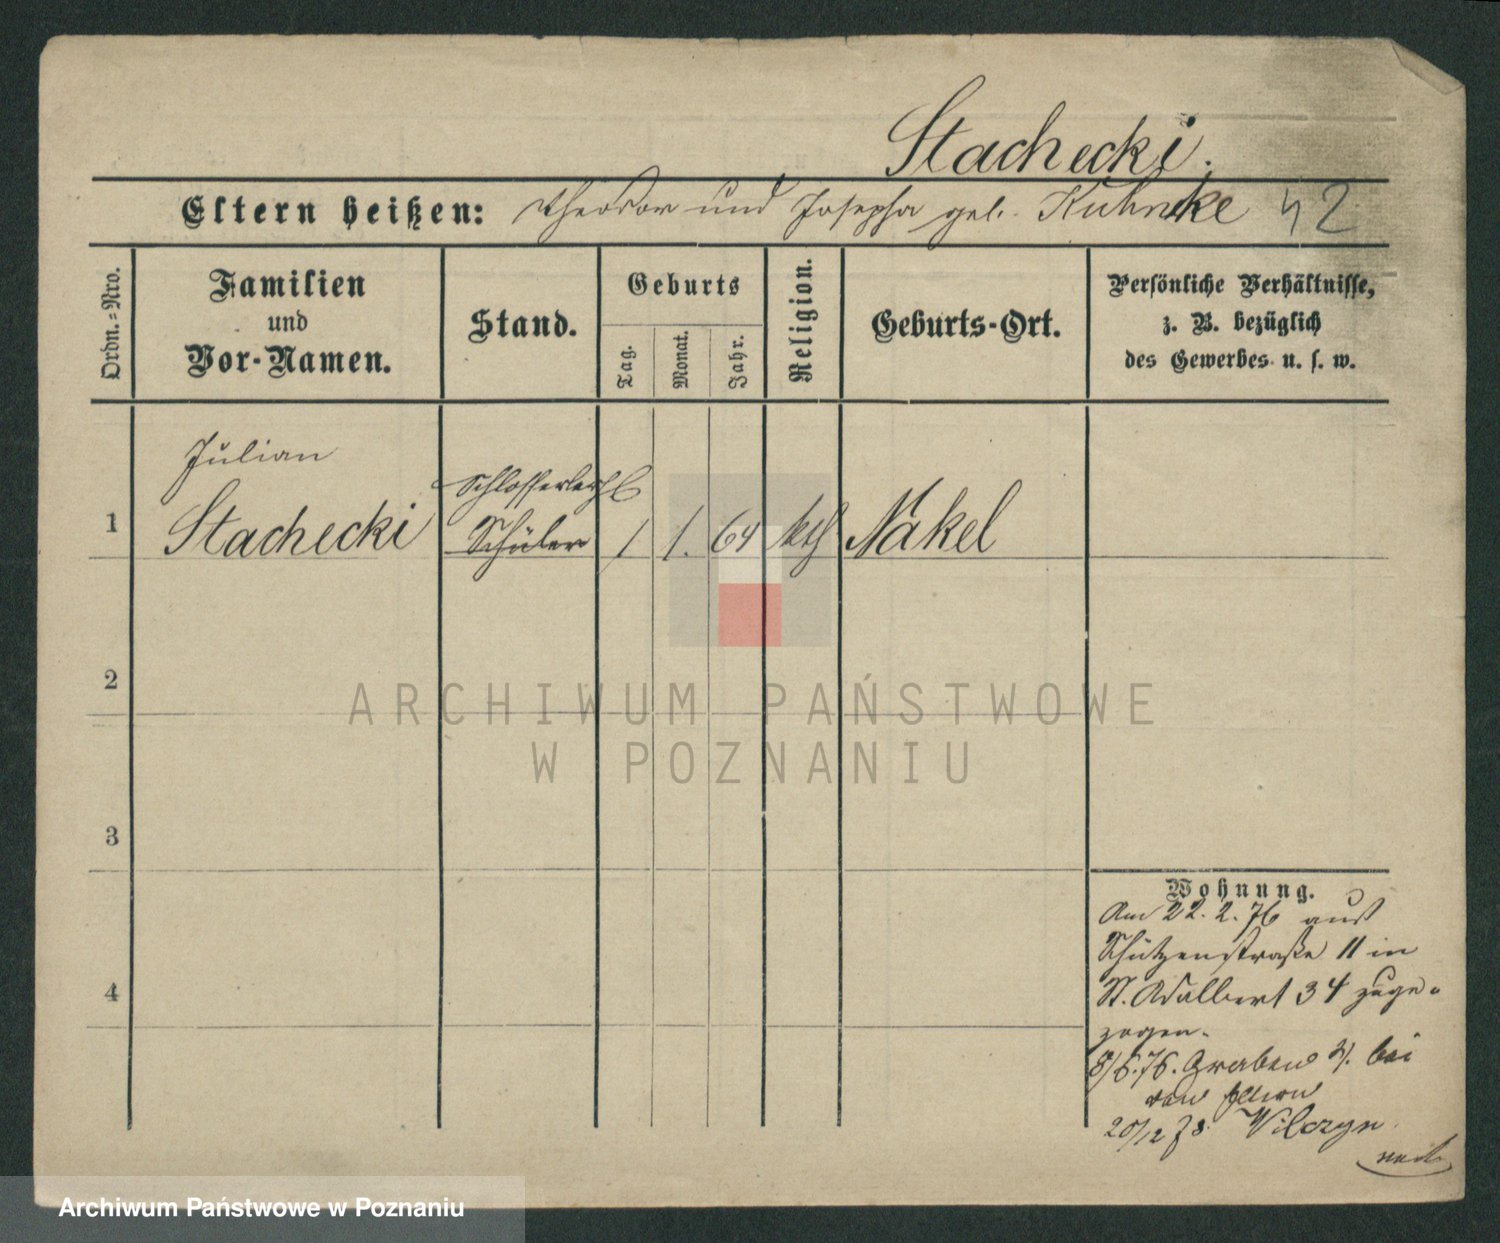 Stachecki.
Eltern heißen: Theodor und Josepha geb. Kuhnke 42
Ordn.=Nro.
Familien
und
Vor-Namen.
Stand.
Geburts
Tag.
Monat.
Jahr.
Religion.
Geburts-Ort.
Persönliche Verhältnisse,
z. B. bezüglich
des Gewerbes u. s. w.
Julian
Schlosserlehrl
1 Stachecki Schüler 1 1. 64 kth Nakel
2
ARCHIWUM PAŃSTWOWE
W POZNANIU
3
4
Wohnung.
Am 22.2.76 aus
Schützenstraße 11 in
St. Adalbert 34 zuge-
zogen.
8/6.76. Graben 2/. bei
den Eltern
20/12 78. Wilczyn
Archiwum Państwowe w Poznaniu